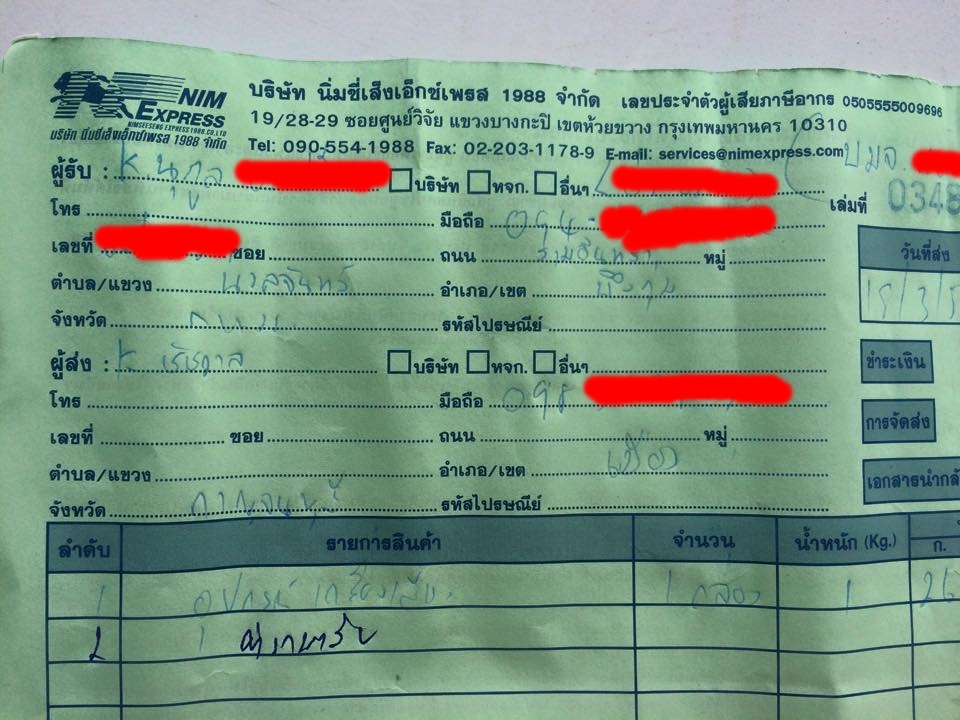 NIM EXPRESS
NIMSEESENG EXPRESS 1988 CO.,LTD
บริษัท นิ่มซี่เส็งเอ็กซ์เพรส 1988 จำกัด
บริษัท นิ่มซี่เส็งเอ็กซ์เพรส 1988 จำกัด เลขประจำตัวผู้เสียภาษีอากร 0505555009696
19/28-29 ซอยศูนย์วิจัย แขวงบางกะปิ เขตห้วยขวาง กรุงเทพมหานคร 10310
Tel: 090-554-1988 Fax: 02-203-1178-9 E-mail: services@nimexpress.com
ผู้รับ : K. นุกูล บริษัท หจก. อื่นๆ
เล่มที่ 0348
โทร มือถือ 094-
เลขที่ ซอย ถนน รามอินทรา หมู่
วันที่ส่ง
ตำบล/แขวง นวลจันทร์ อำเภอ/เขต บึงกุ่ม
จังหวัด กทม. รหัสไปรษณีย์
ผู้ส่ง : K. บริษัท หจก. อื่นๆ
ชำระเงิน
โทร มือถือ 098
การจัดส่ง
เลขที่ ซอย ถนน หมู่
ตำบล/แขวง อำเภอ/เขต เมือง
เอกสารนำกลั
จังหวัด กาญจนบุรี รหัสไปรษณีย์
ลำดับ รายการสินค้า จำนวน น้ำหนัก (Kg.) ก.
1 อุปกรณ์เครื่องเสียง 1 กล่อง 1
2